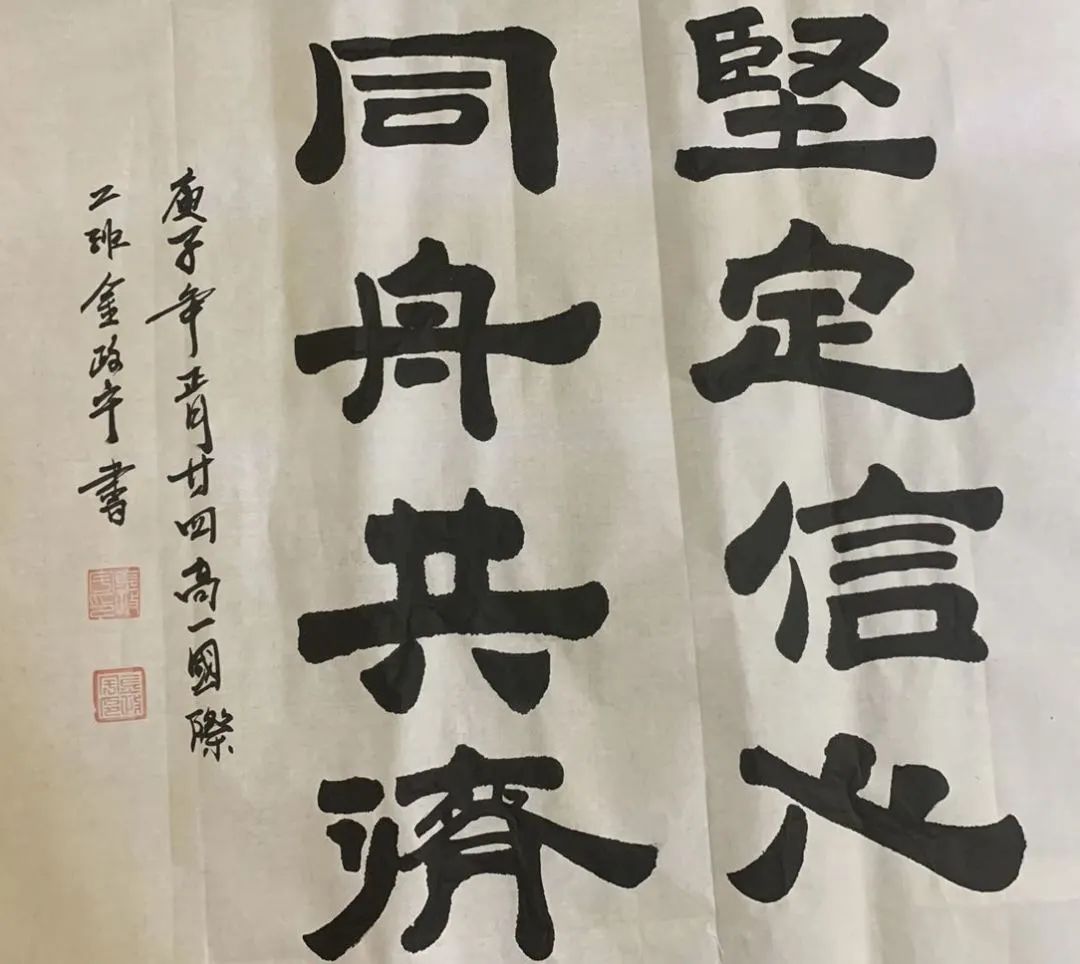 堅定信心
同舟共濟
庚子年正月廿四高一國際
二班金政宇書